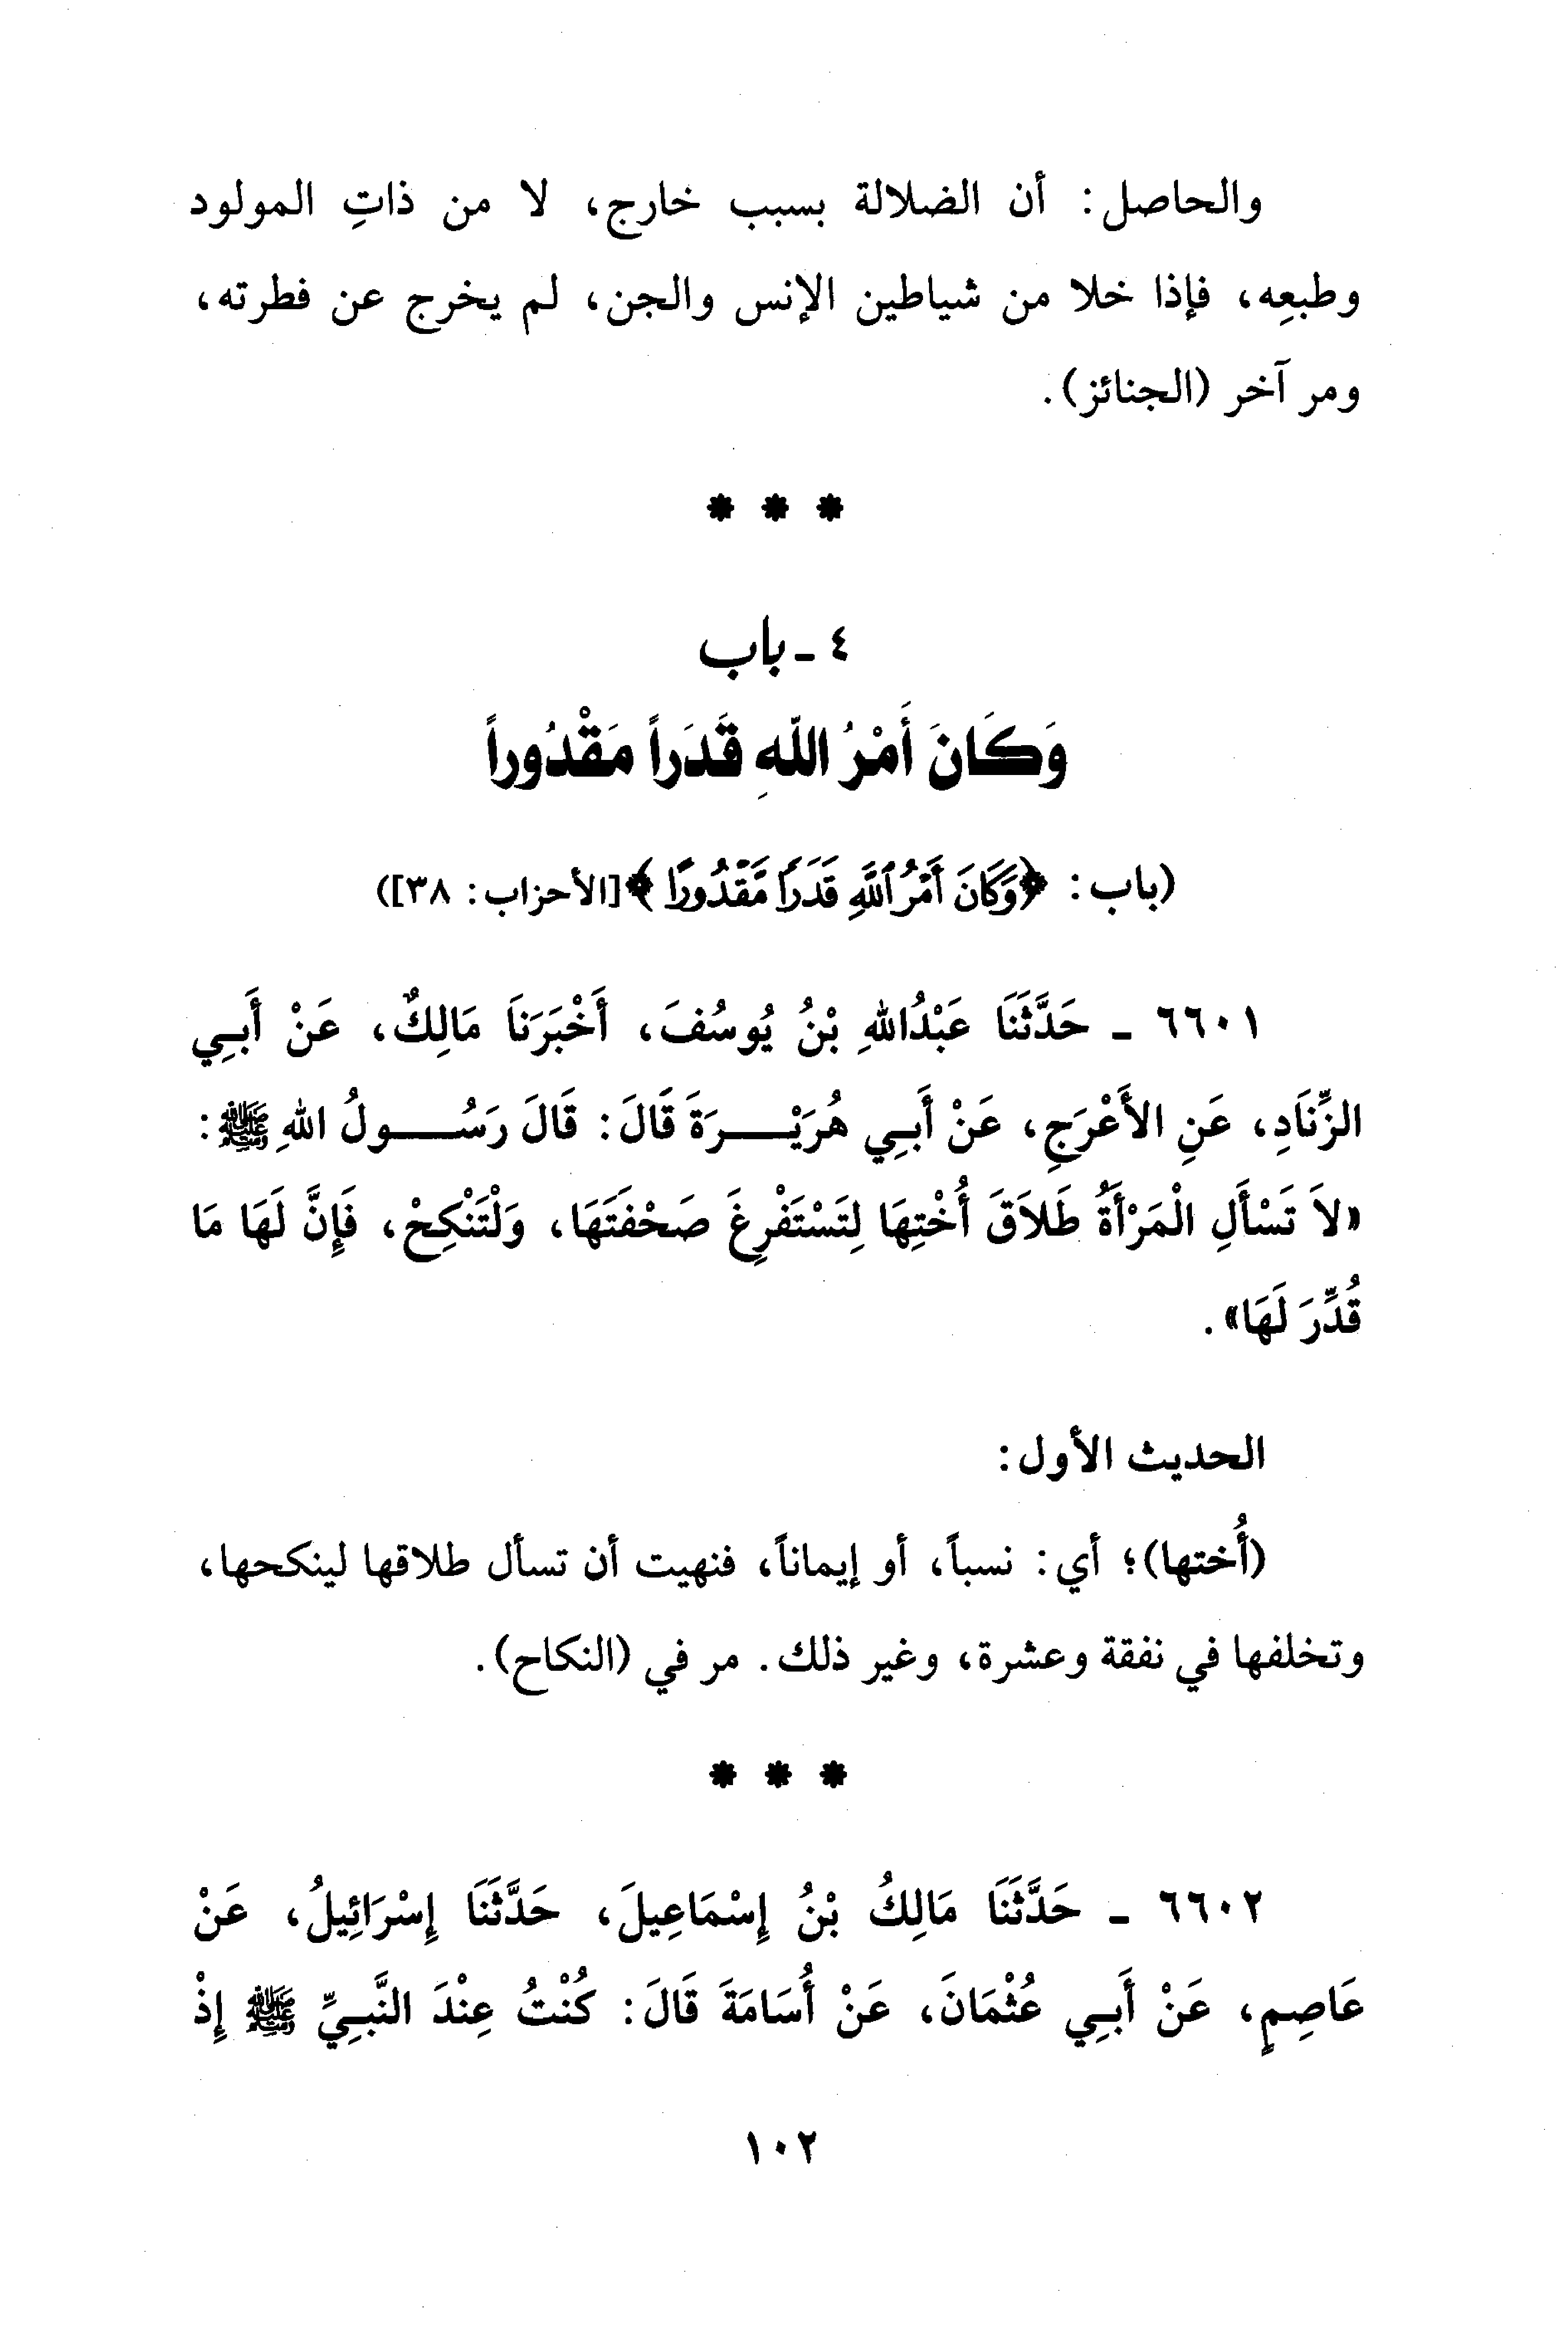 والحاصل: أن الضلالة بسبب خارج، لا من ذاتِ المولود
وطبعِه، فإذا خلا من شياطين الإنس والجن، لم يخرج عن فطرته،
ومر آخر (الجنائز).
* * *
٤ - باب
وَكَانَ أَمْرُ اللهِ قَدَراً مَقْدُوراً
(باب: ﴿وَكَانَ أَمْرُ ٱللَّهِ قَدَرًا مَّقْدُورًا﴾ [الأحزاب: ٣٨])
٦٦٠١ - حَدَّثَنَا عَبْدُاللهِ بْنُ يُوسُفَ، أَخْبَرَنَا مَالِكٌ، عَنْ أَبِي
الزِّنَادِ، عَنِ الأَعْرَجِ، عَنْ أَبِي هُرَيْرَةَ قَالَ: قَالَ رَسُولُ اللهِ ﷺ:
«لاَ تَسْأَلِ الْمَرْأَةُ طَلاَقَ أُخْتِهَا لِتَسْتَفْرِغَ صَحْفَتَهَا، وَلْتَنْكِحْ، فَإِنَّ لَهَا مَا
قُدِّرَ لَهَا».
الحديث الأول:
(أُختها)؛ أي: نسباً، أو إيماناً، فنهيت أن تسأل طلاقها لينكحها،
وتخلفها في نفقة وعشرة، وغير ذلك. مر في (النكاح).
* * *
٦٦٠٢ - حَدَّثَنَا مَالِكُ بْنُ إِسْمَاعِيلَ، حَدَّثَنَا إِسْرَائِيلُ، عَنْ
عَاصِمٍ، عَنْ أَبِي عُثْمَانَ، عَنْ أُسَامَةَ قَالَ: كُنْتُ عِنْدَ النَّبِيِّ ﷺ إِذْ
١٠٢